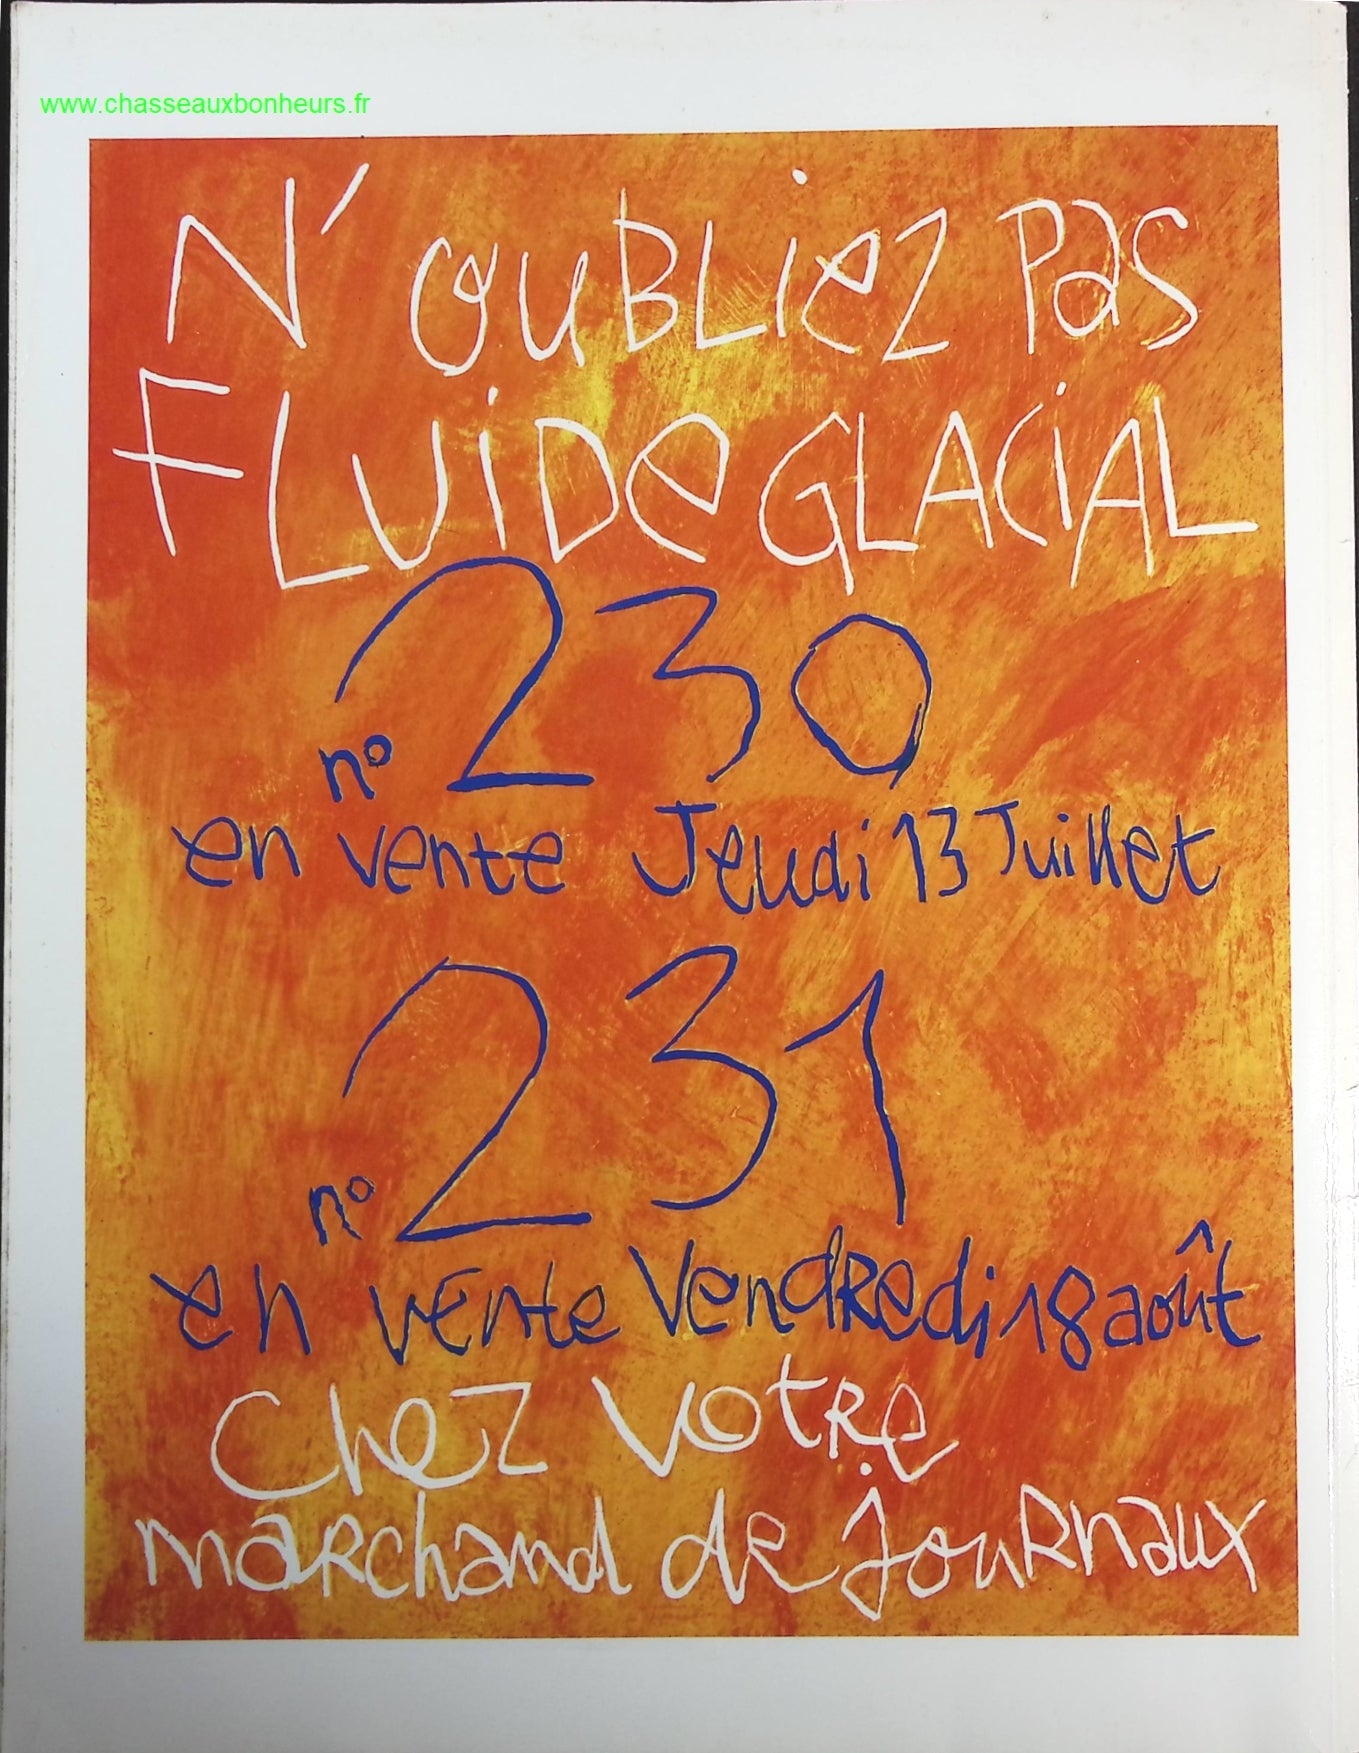 www.chasseauxbonheurs.fr
N'OUBLIEZ PAS
FLUIDE GLACIAL
n° 230
en vente Jeudi 13 Juillet
n° 231
en vente Vendredi 18 août
Chez votre
marchand de journaux